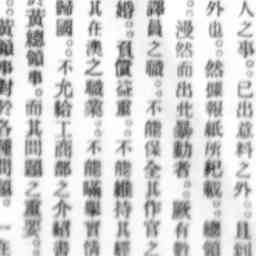 人之事。已出意料之外。且到
外也。然據報紙所紀載。總領
。漫然而出此暴動者。厥有數
譯員之職。不能保全其作官之
婚。負債益重。不能維持其經
其在漢之職業。不能瞞舉實情
歸國。不允給工商部之介紹書
於黃總領事。而其問題之重要。
。黃領事對於各種問題。一在